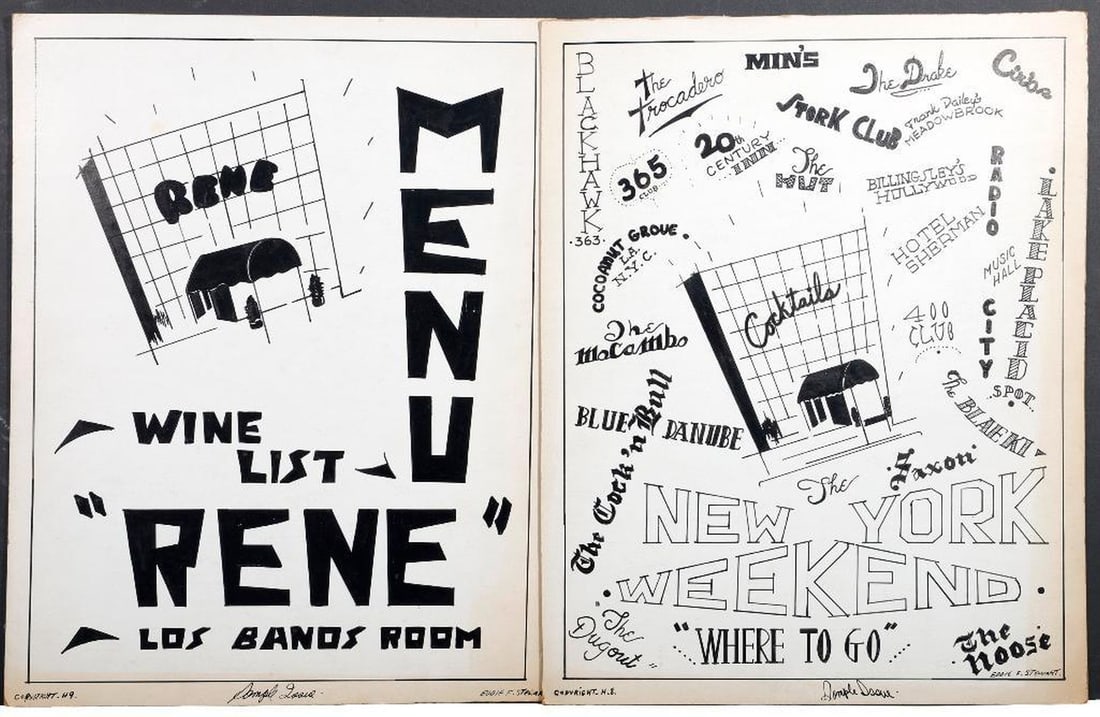 RENE
MENU
WINE
LIST
"RENE"
LOS BANOS ROOM
COPYRIGHT. 49.
EDDIE F. STEWAR
BLACKHAWK
.363.
The
Trocadero
MIN'S
The Drake
Ciro's
STORK CLUB
Frank Dailey's
MEADOWBROOK
20th
CENTURY
INN
365
CLUB
The
HUT
BILLINGSLEY'S
HOLLYWOOD
RADIO
CITY
MUSIC
HALL
LAKE PLACID
SPOT.
HOTEL
SHERMAN
COCOANUT GROVE.
L.A.
N.Y.C.
Cocktails
400
CLUB
The
MoCambo
The
BLUE DANUBE
The Cock'n Bull
The Saxon
NEW YORK
WEEKEND
"The
Dugout"
"WHERE TO GO"
The
Noose
EDDIE F. STEWART.
COPYRIGHT.